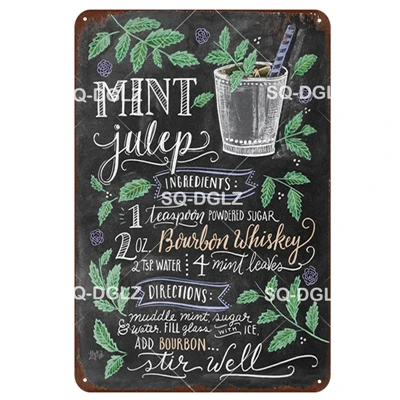 MINT
julep
INGREDIENTS:
1 teaspoon POWDERED SUGAR
2 OZ. Bourbon Whiskey
2 TSP WATER 4 mint leaves
DIRECTIONS:
muddle mint, sugar
& water. FILL glass WITH ICE.
ADD BOURBON...
stir well
SQ-DGLZ
SQ-DGLZ
SQ-DGLZ
SQ-DGLZ
SQ-DGLZ
SQ-DGLZ
SQ-DGLZ